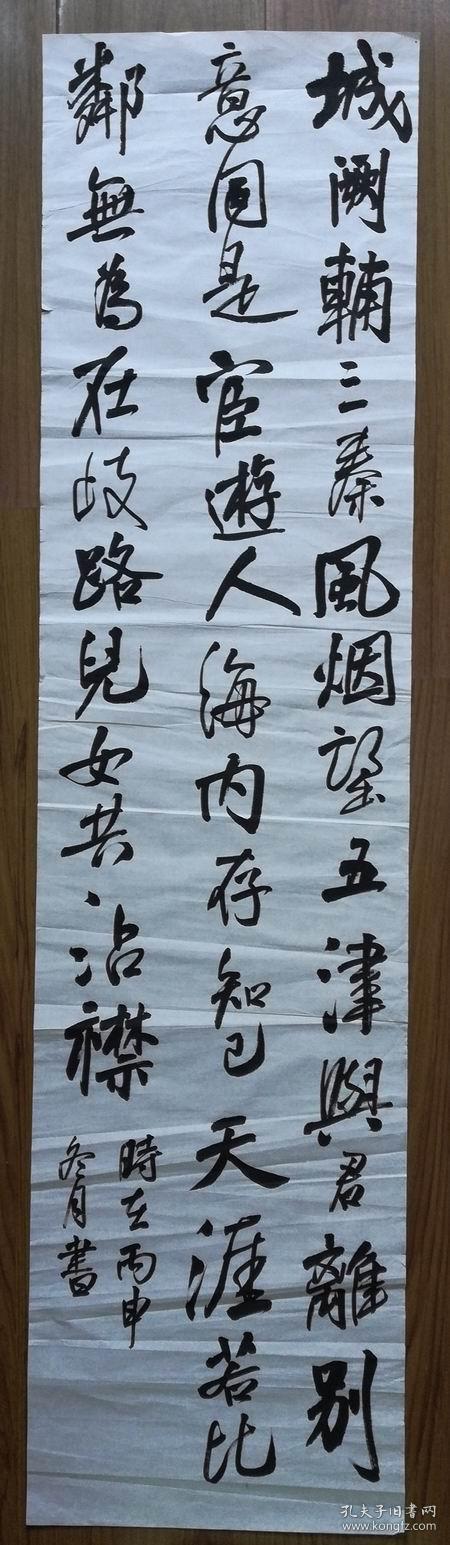 城阙輔三秦風烟望五津與君離别
意同是宦遊人海内存知己天涯若比
鄰無為在歧路兒女共沾襟
時在丙申
冬月書
孔夫子旧书网
www.kongfz.com